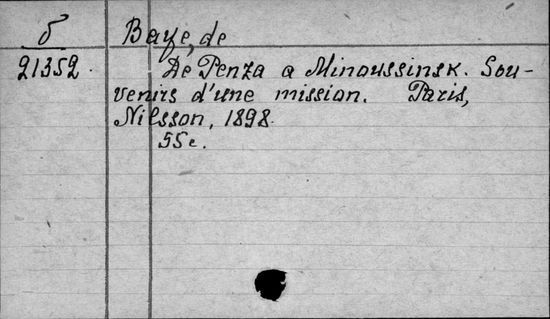 б
21352.
Baye, de
De Penza a Minoussinsk. Sou-
venirs d'une mission. Paris,
Nilsson, 1898.
55 c.